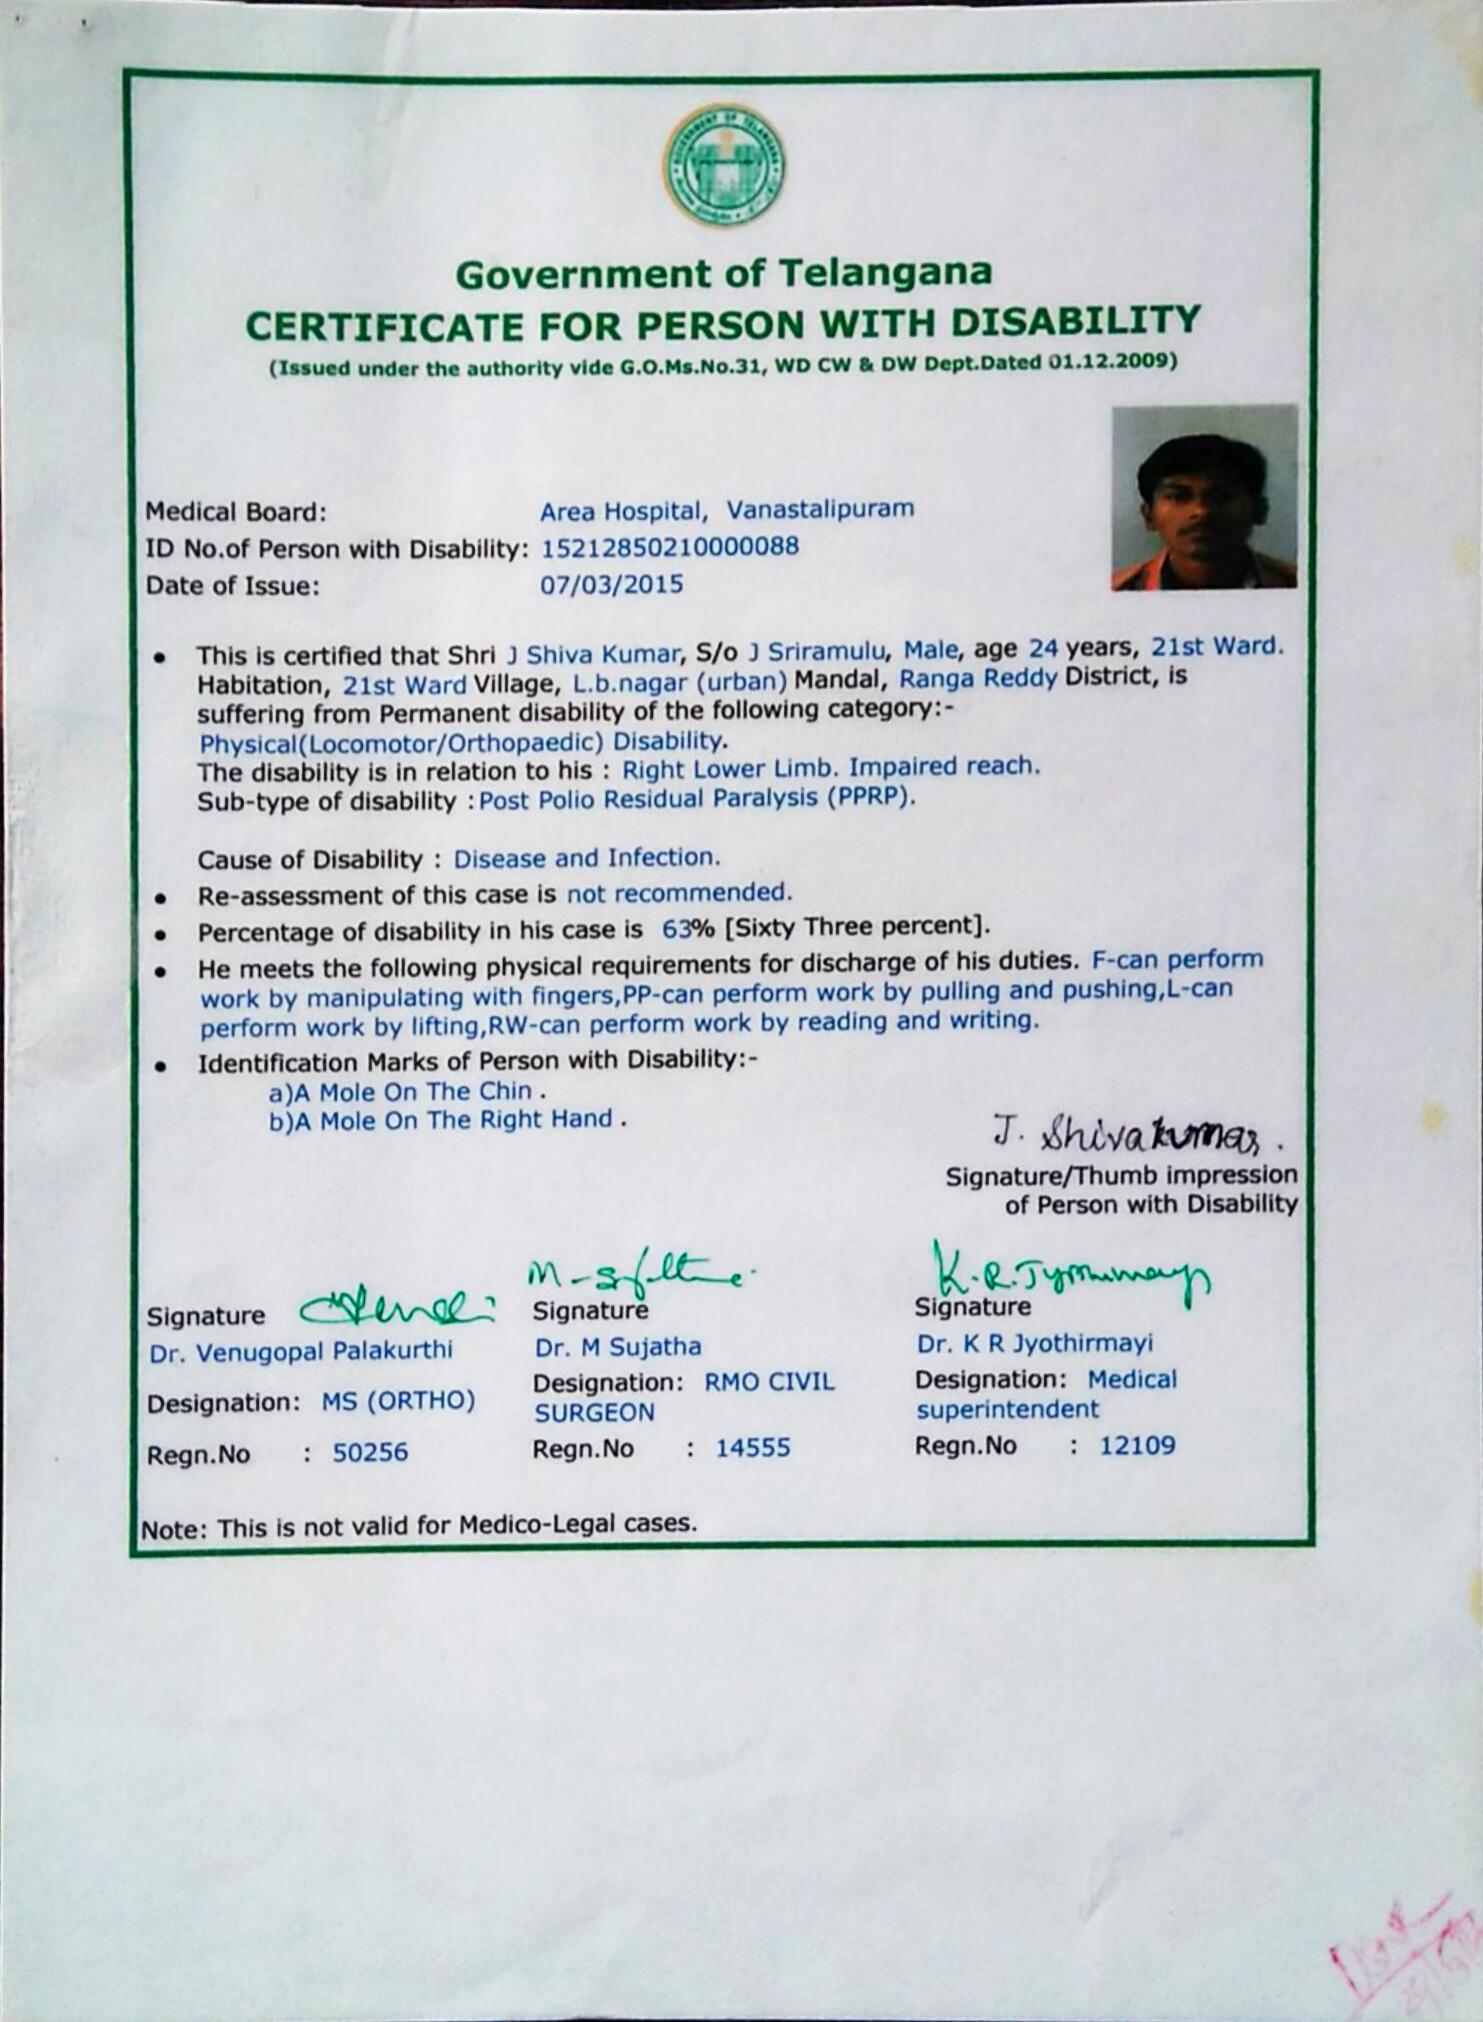 GOVERNMENT OF TELANGANA
Government of Telangana
CERTIFICATE FOR PERSON WITH DISABILITY
(Issued under the authority vide G.O.Ms.No.31, WD CW & DW Dept.Dated 01.12.2009)
Medical Board: Area Hospital, Vanastalipuram
ID No.of Person with Disability: 15212850210000088
Date of Issue: 07/03/2015
• This is certified that Shri J Shiva Kumar, S/o J Sriramulu, Male, age 24 years, 21st Ward.
Habitation, 21st Ward Village, L.b.nagar (urban) Mandal, Ranga Reddy District, is
suffering from Permanent disability of the following category:-
Physical(Locomotor/Orthopaedic) Disability.
The disability is in relation to his : Right Lower Limb. Impaired reach.
Sub-type of disability : Post Polio Residual Paralysis (PPRP).
Cause of Disability : Disease and Infection.
• Re-assessment of this case is not recommended.
• Percentage of disability in his case is 63% [Sixty Three percent].
• He meets the following physical requirements for discharge of his duties. F-can perform
work by manipulating with fingers,PP-can perform work by pulling and pushing,L-can
perform work by lifting,RW-can perform work by reading and writing.
• Identification Marks of Person with Disability:-
a)A Mole On The Chin .
b)A Mole On The Right Hand .
J. Shivakumar.
Signature/Thumb impression
of Person with Disability
K.R.Jyothirmayi
Signature Signature Signature
Dr. Venugopal Palakurthi Dr. M Sujatha Dr. K R Jyothirmayi
Designation: MS (ORTHO) Designation: RMO CIVIL Designation: Medical
SURGEON superintendent
Regn.No : 50256 Regn.No : 14555 Regn.No : 12109
Note: This is not valid for Medico-Legal cases.